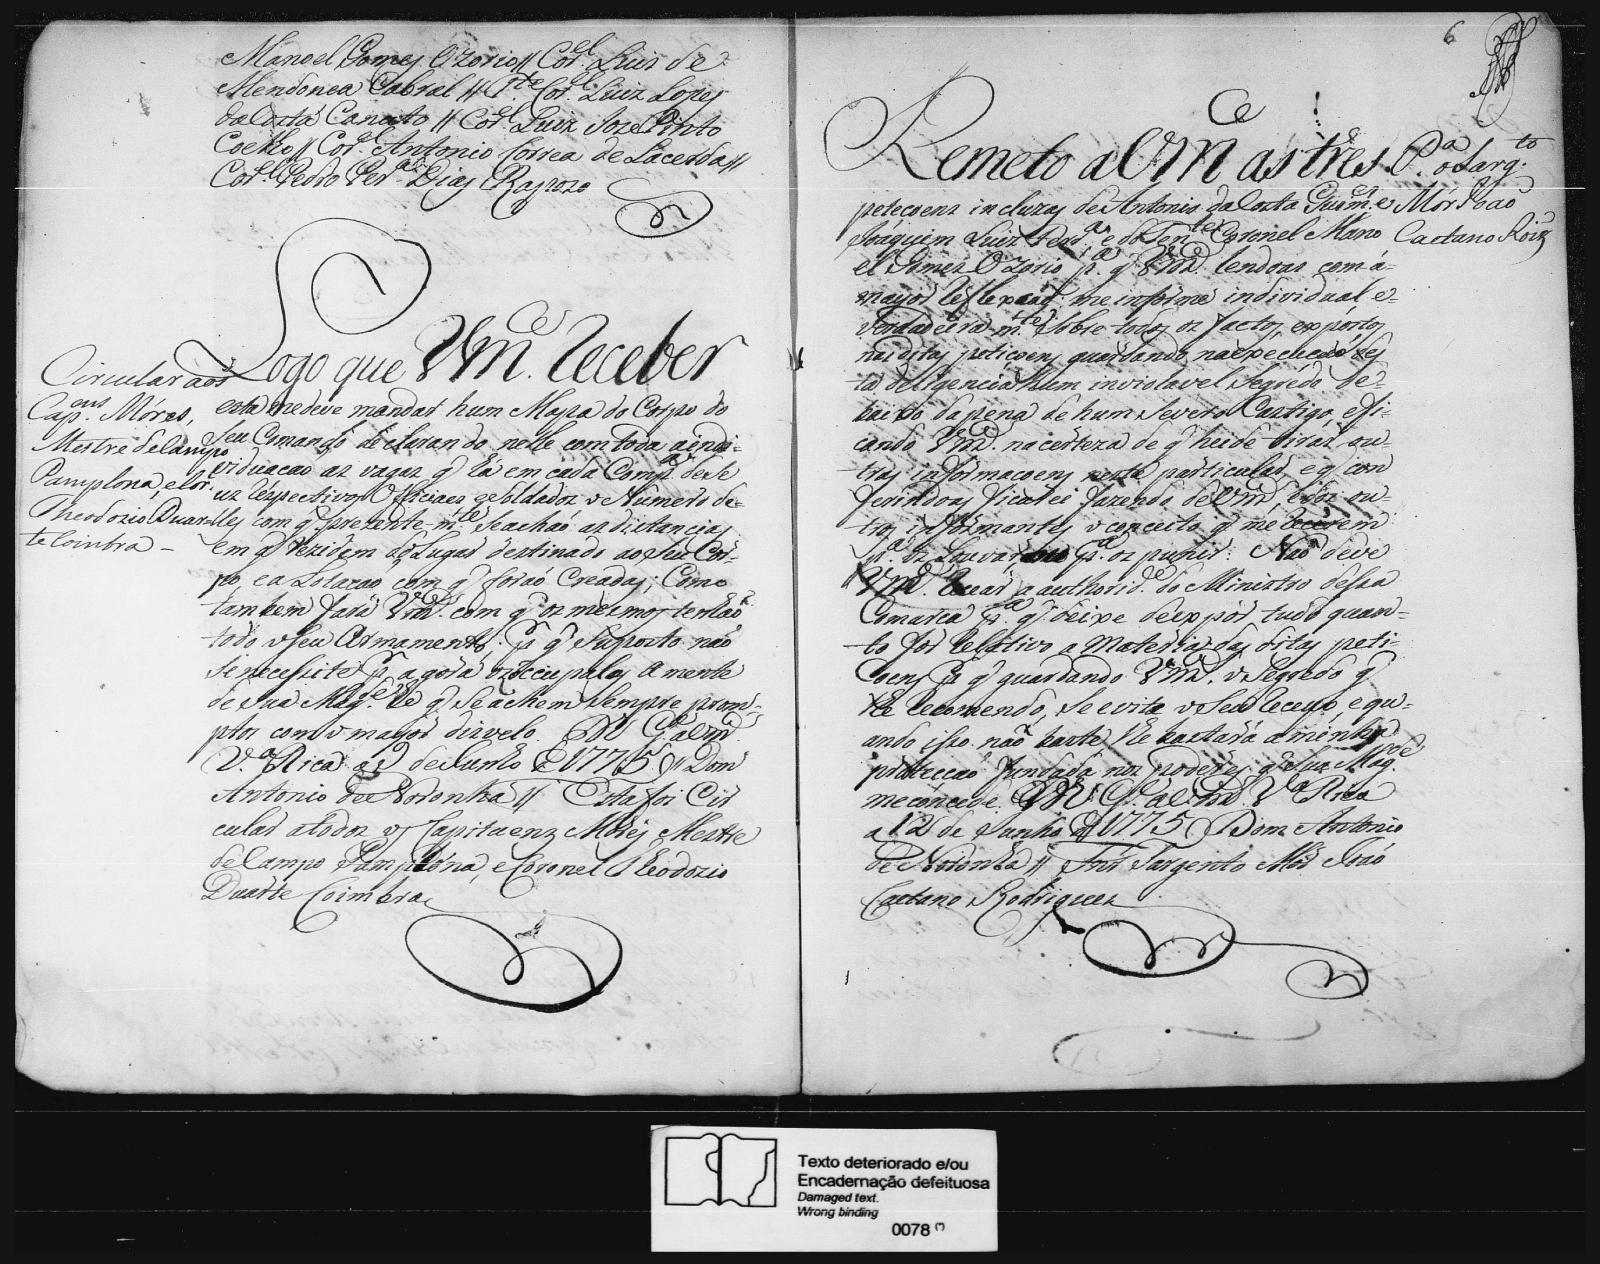 Manoel Gomes Ozorio // Cor.el Luis de
Mendonca Cabral // Cor.el Luiz Lopes
da Costa // Cor.el Luiz Joze Pinto
Coelho // Cor.el Antonio Correa de Lacerda //
Cor.el Pedro Dias Rapozo
Circular aos
Cap.ens Móres,
Mestre de Campo
Pamplona, e Cor.
Theodozio Duar-
te Coimbra –
Logo que Vm.ce receber
esta me deve mandar hum Mapa do Corpo do
seu Comando declarando nelle com toda a indi-
viduacao as vagas q̃ há em cada Comp.a de se
us respectivos Officiaes e soldados o Numero de-
lles com q̃ prezente-m.te se achaõ as distancias
em q̃ rezidem do Lugar destinado ao seu Cor-
po e a Lotacao com q̃ foraõ Creadas; Como
tambem fará Vm.ce com q̃ os mesmos tenhaõ
todo o seu Armamento. q̃ suposto naõ
se necessite p.r agora occupalos a mente
de Sua Mag.de he q̃ se achem sempre prom-
ptos com o mayor disvelo. D.s G.e a Vm.ce
V.a Rica a 9 de Junho de 1775 // Dom
Antonio de Noronha // Esta foi Cir
cular a todos os Capitaens Móres, Mestre
de Campo Pamplona, e Coronel Theodozio
Duarte Coimbra
6
P.a o Sarg.to
Mór Joaõ
Caetano Roiz
Remeto a Vm.ce as tres
peticoens incluzas de Antonio da Costa Guim.es e
Joaquim Luiz e do Ten.te Coronel Mano
el Gomes Ozorio p.a q̃ Vm.ce lendoas com a
mayor reflexaõ me informe individual e
verdadeira-m.te sobre todos os factos expostos
nas ditas peticoens guardando na execucaõ des
ta deligencia hum inviolavel segredo de-
baixo da pena de hum severo Castigo, e fi-
cando Vm.ce na certeza de q̃ heide tirar ou-
tras informacoens nesta particular, e q̃ con
ferindoas ficarei fazendo de Vm.ce e dos ou-
tros informantes o conceito q̃ me merecerem
p.a os louvar, p.a os punir. Naõ deve
Vm.ce a authorid.e do Ministro dessa
Comarca p.a q̃ deixe de expor tudo quan-
to for relativo a materia das ditas peti-
coens q̃ guardando Vm.ce o segredo q̃
lhe recomendo, se evita o seu receyo, e qu-
ando isso naõ baste lhe bastará a minha
proteccaõ fundada nos poderes q̃ Sua Mag.de
me concede. D.s G.e a Vm.ce V.a Rica
a 12 de Junho de 1775 // Dom Antonio
de Noronha // Snr. Sargento Mór Joaõ
Caetano Rodrigues
Texto deteriorado e/ou
Encadernação defeituosa
Damaged text.
Wrong binding
0078 (*)